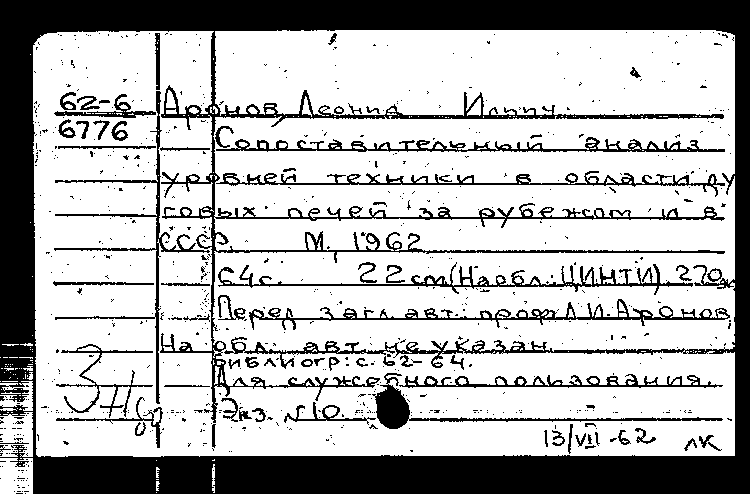 62-6 Аронов, Леонид Ильич.
6776 Сопоставительный анализ
уровней техники в области ду
говых печей за рубежом и в
СССР. М., 1962
64с. 22 см (На обл.: ЦИНТИ). 270
Перед загл. авт.: проф. Л.И. Аронов,
На обл. авт. не указан.
Библиогр.: с. 62-64.
Для служебного пользования.
Экз. №10.
13/VII-62 ЛК